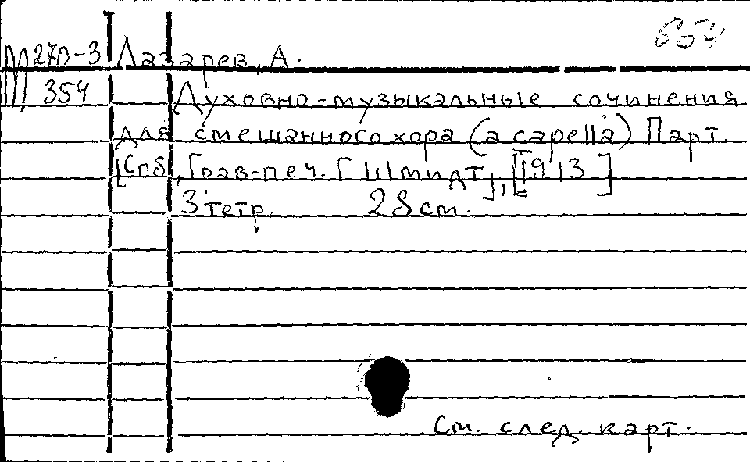 Лазарев, А.
354 Духовно-музыкальные сочинения
для смешанного хора (a capella) Парт.
[Спб., Грав-печ. Г. Шмидт], [1913]
3 тетр. 28 см.
См. след. карт.